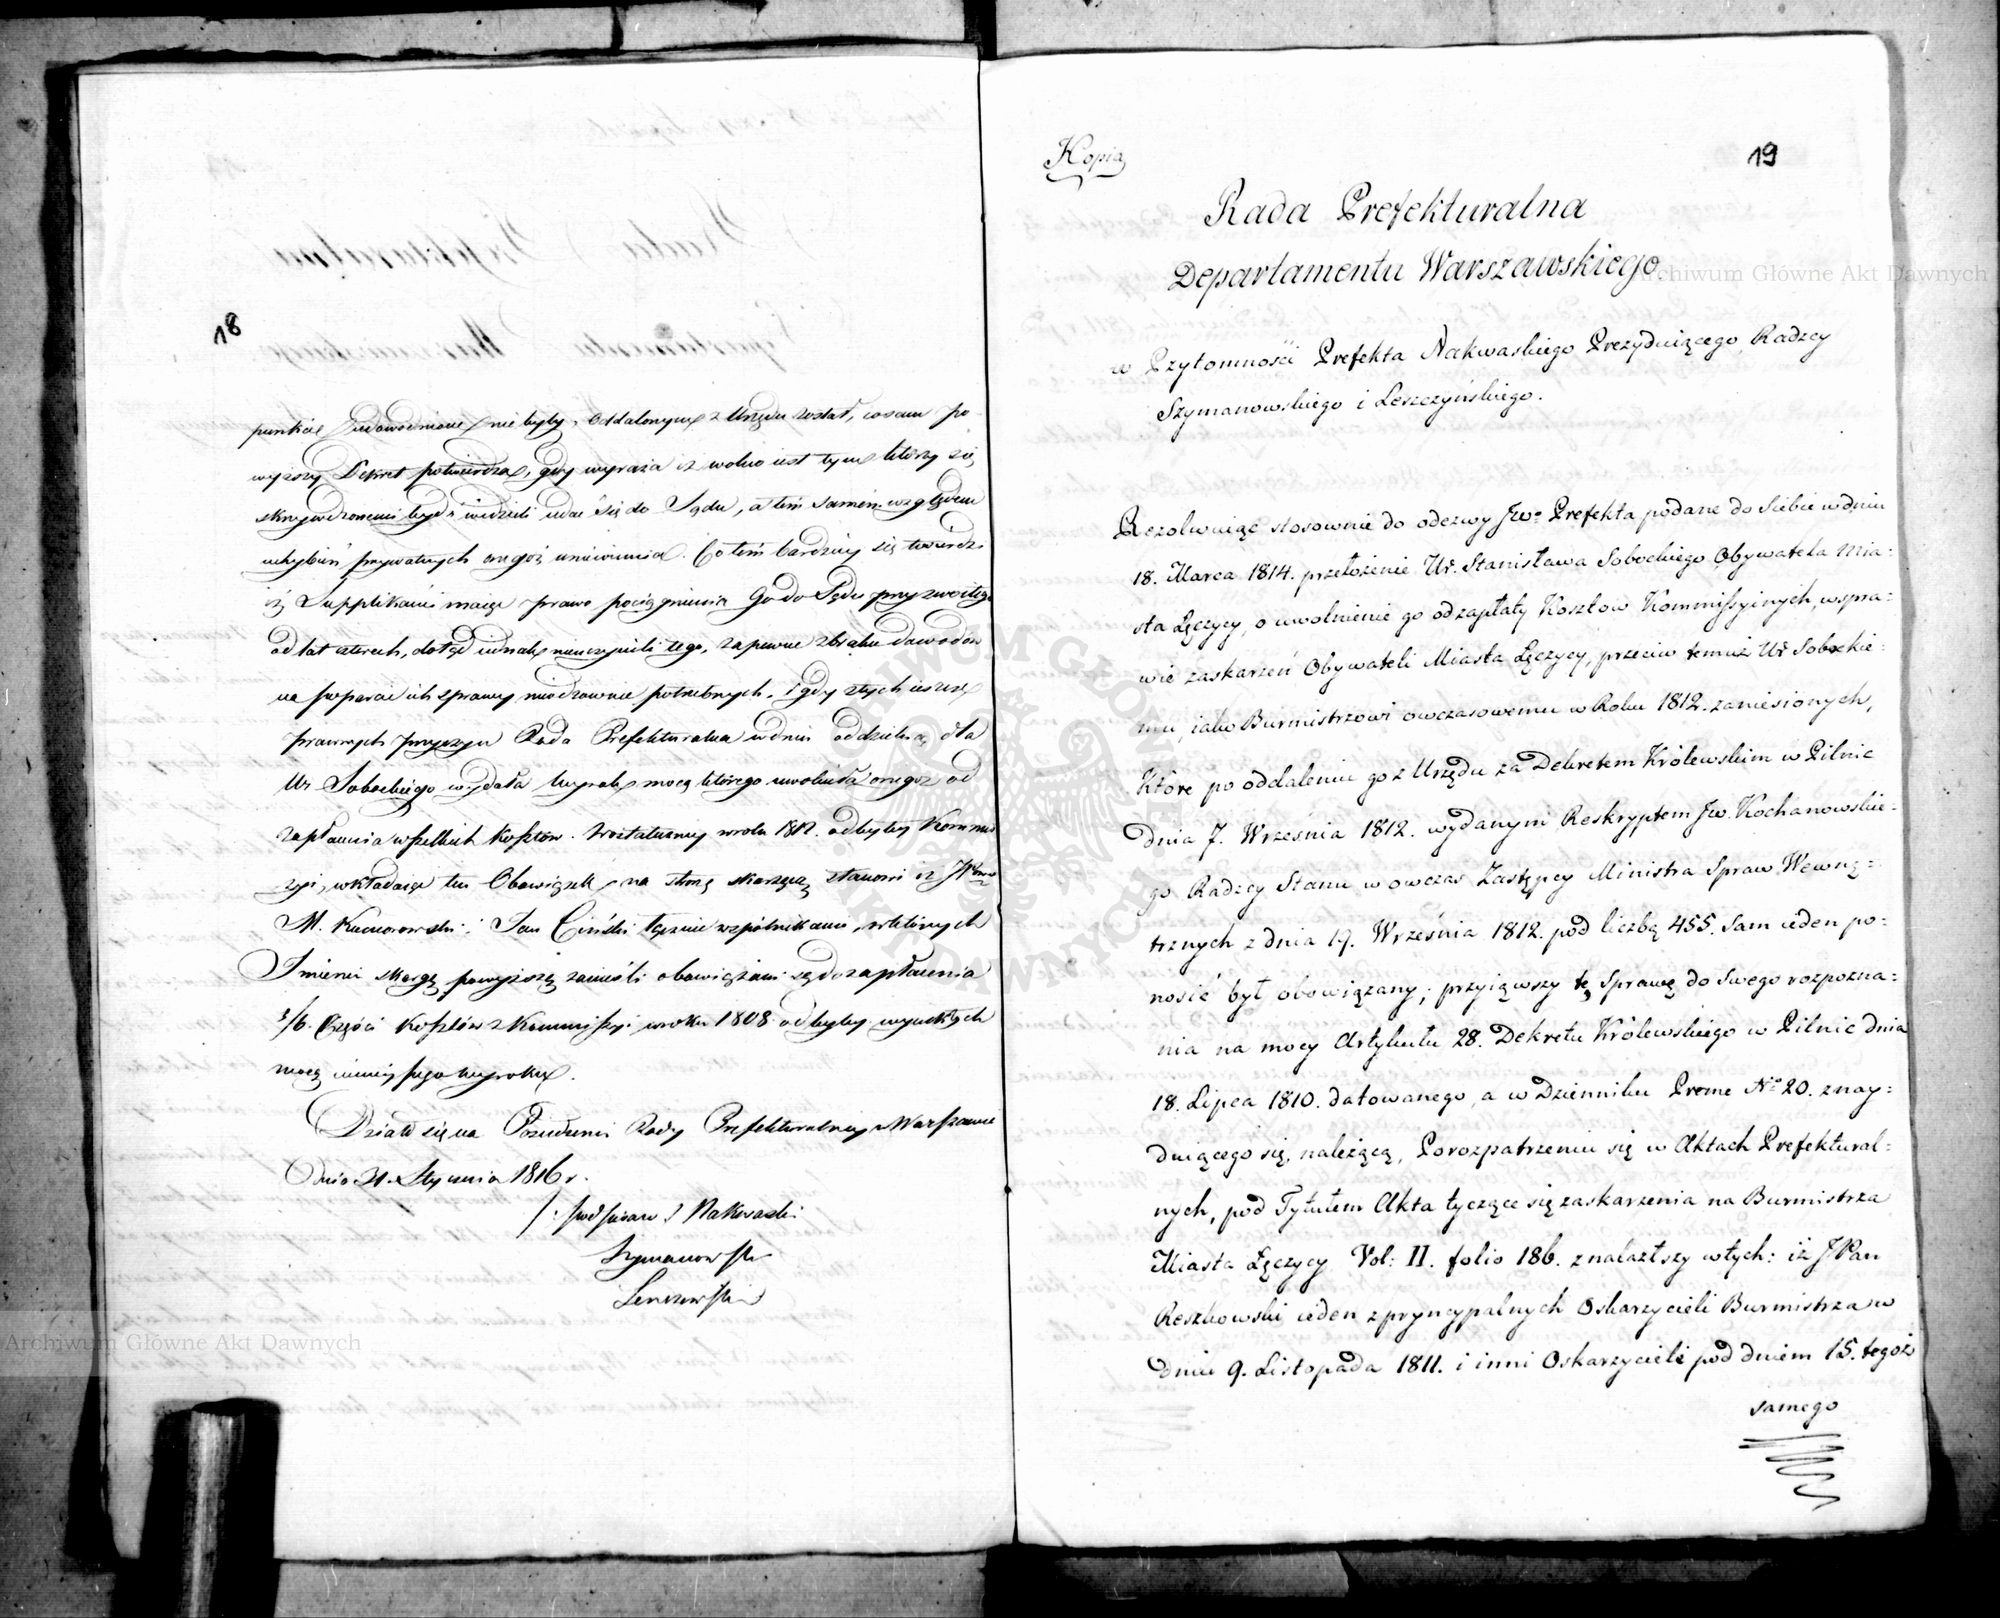 18
punkcie udowodnione nie były, oddalonym z Urzędu został, co sam po-
wyższy Dekret potwierdza, gdy wyraża iż wolno iest tym którzy się
skrzywdzonemi bydź widzieli udać się do Sądu, a tem samem względem
uchybień prywatnych onegoż uniewinnia. Co tem bardziey się twierdzi
iż Supplikanci maiąc prawo pociągnienia Go do Sądu przyzwoitego
od lat czterech, dotąd iednak nieuczynili tego, zapewne z braku dowodów
na poparcie ich sprawy niodzownie potrzebnych. i gdy z tych ieszcze
prawnych przyczyn Rada Prefekturalna w dniu oddzielną dla
Ur. Sobockiego wydała wyrok mocą którego uwolniła onegoż od
zapłacenia wszelkich kosztów w roku 1812. odbytey Kommis
syi, wkładaiąc ten Obowiązek na stronę skarżącą stanowi iż JPanowie
M. Kumorowski i Jan Ciński łącznie wspólnikami, w których
Imieniu skargę powyższą zanieśli obowiązani są do zapłacenia
5/6. Części kosztów z Kommissyi w roku 1808 odbytey wynikłych
mocą ninieyszego wyroku.
Działo się na Posiedzeniu Rady Prefekturalney w Warszawie
Dnia 31. Stycznia 1816 r.
/: podpisano :/ Nakwaski
Szymanowski
Leszczyński
Kopia
19
Rada Prefekturalna
Departamentu Warszawskiego
w Przytomności Prefekta Nakwaskiego Prezyduiącego, Radzcy
Szymanowskiego i Leszczyńskiego.
Rezolwuiąc stosownie do odezwy JWo Prefekta podane do Siebie w dniu
18. Marca 1814. przełożenie Ur. Stanisława Sobockiego Obywatela Mia-
sta Łęczycy, o uwolnienie go od zapłaty Kosztow Kommissyinych, w spra-
wie zaskarzeń Obywateli Miasta Łęczycy, przeciw temuż Ur Sobockie-
mu, iako Burmistrzowi owczasowemu w Roku 1812. zaniesionych,
Które po oddaleniu go z Urzędu za Dekretem Królewskim w Pilnic
dnia 7. Września 1812. wydanym Reskryptem JW. Kochanowskie-
go Radzcy Stanu wowczas Zastępcy Ministra Spraw Wewnę-
trznych z dnia 19. Września 1812. pod liczbą 455. sam ieden po-
nosić był obowiązany; przyiąwszy tę Sprawę do Swego rozpozna-
nia na mocy Artykułu 28. Dekretu Królewskiego w Pilnic dnia
18. Lipca 1810. datowanego, a w Dzienniku Prawa No 20. znay-
duiącego się, należącą, Po rozpatrzeniu się w Aktach Prefektural-
nych, pod Tytułem Akta tyczące się zaskarzenia na Burmistrza
Miasta Łęczycy Vol: II. folio 186. znalazłszy w tych: iż JPan
Reszkowski ieden z pryncypalnych Oskarzycieli Burmistrza w
dniu 9. Listopada 1811. i inni Oskarzyciele pod dniem 15. tegoż
samego
Archiwum Główne Akt Dawnych
Archiwum Główne Akt Dawnych
ARCHIWUM GŁÓWNE AKT DAWNYCH